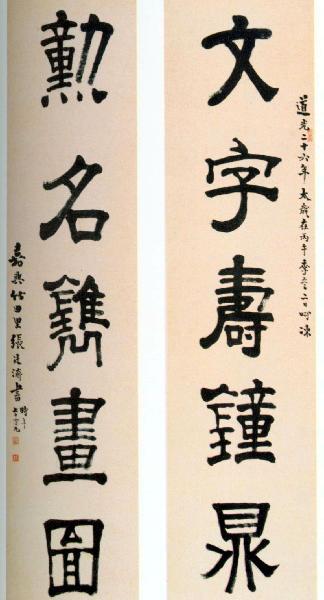 道光二十六年太歲在丙午季冬二日呵凍
文字壽鐘鼎
勳名鐫畫圖
嘉興竹田里張廷濟書時年七十九